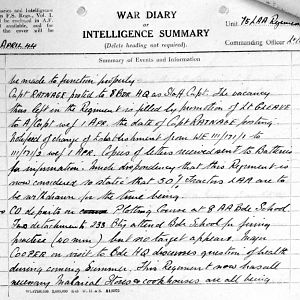 and Intelligence
F.S. Regs., Vol. I.
WAR DIARY
or
INTELLIGENCE SUMMARY
(Delete heading not required).
Unit 75 LAA Regiment
Commanding Officer
APRIL 44
Summary of Events and Information
be made to function properly.
Capt RATNAGE posted to 8 BDE HQ as Staff Capt. The vacancy
thus left in the Regiment is filled by promotion of Lt GLEAVE
to A/Capt w.e.f 1 APR, the date of Capt RATNAGE posting.
Notified of change of Establishment from WE III/171/1 to
III/171/2 w.e.f 1 APR. Copies of letters received sent to Batteries
for information. Much despondency that this Regiment is
now considered so static that 50% Tractors LAA are to
be withdrawn for the time being.
CO departs on Plotting Course at 8 AA Bde School.
Two detachments 233 Bty attend Bde School for firing
practice (40 mm) but no target appears. Major
COOPER on visit to Bde HQ discusses question of health
during coming Summer. This Regiment now has all
necessary malarial stores & cookhouses are all being